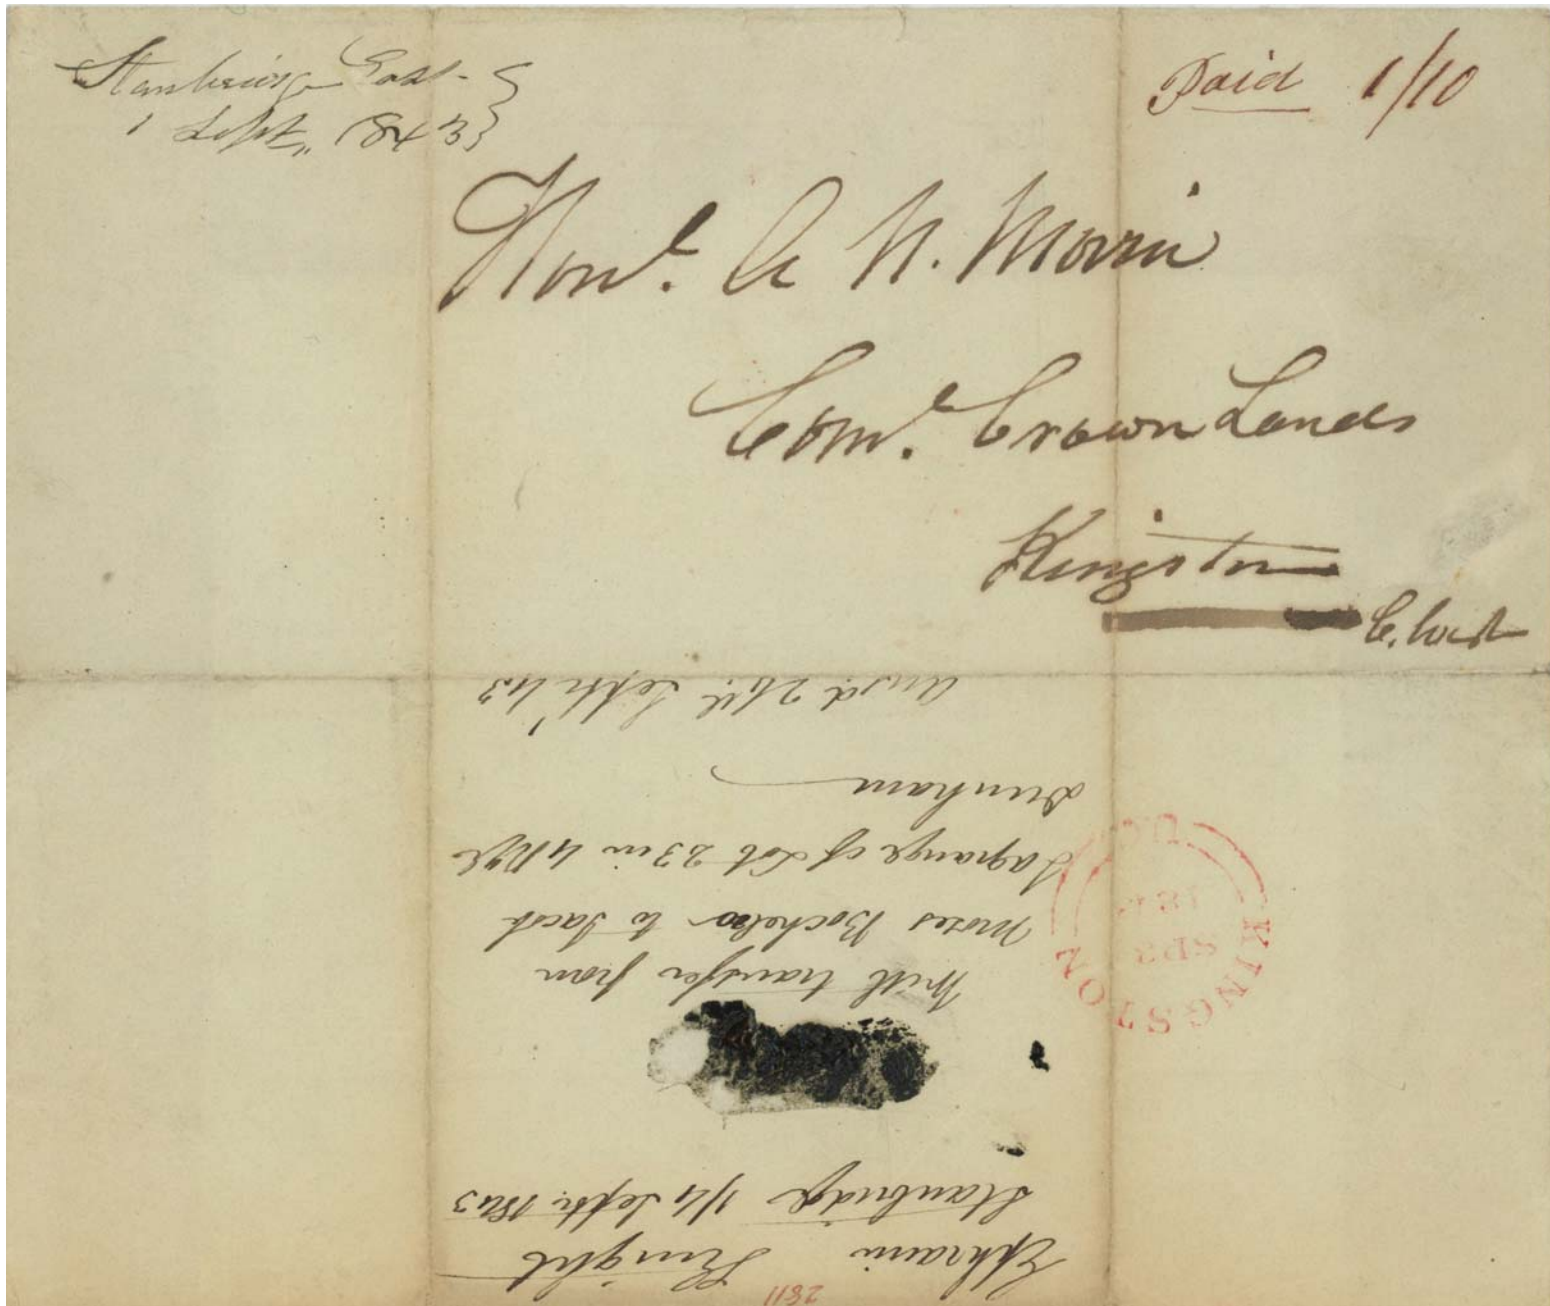 Stanbridge East
1 Sept,, 1843
Paid 1/10
Honl. A N. Morin
Comr. Crown Lands
Kingston
C. West
Ephraim Knight
Stanbridge 1/4 Septr. 1843
With transfer from
Moses Bachelor to Jacob
Lagrange of Lot 23 in 4 Rge
Dunham
Septr 43
KINGSTON
SP
2811